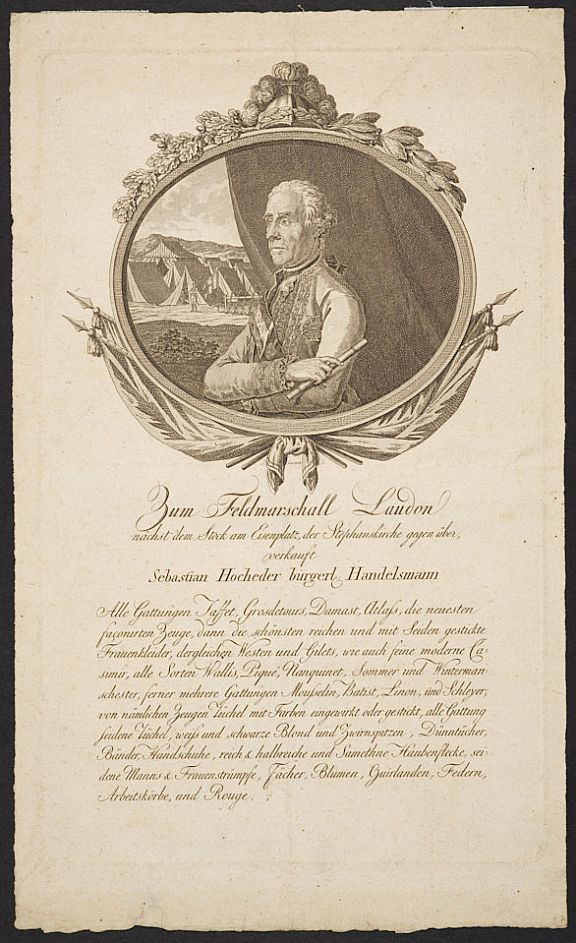 Zum Feldmarschall Laudon
nächst dem Stock am Eisenplatz, der Stephanskirche gegen über,
verkauft
Sebastian Hocheder bürgerl. Handelsmann
Alle Gattungen Taffet, Grosdetours, Damast, Atlass, die neuesten
façonirten Zeuge, dann die schönsten reichen und mit Seiden gestickte
Frauenkleider, dergleichen Westen und Gilets, wie auch feine moderne Ca-
simir, alle Sorten Wallis, Piqué, Nanquinet, Sommer und Winterman-
schester, ferner mehrere Gattungen Mousselin, Batist, Linon, und Schleyer,
von nämlichen Zeugen Tüchel mit Farben eingewirkt oder gestickt, alle Gattung
seidene Tüchel, weiss und schwarze Blond und Zwirnspitzen, Dünntücher,
Bänder, Handschuhe, reich & halbreiche und Samethne Haubenflecke, sei-
dene Manns & Frauenstrümpfe, Fächer, Blumen, Guirlanden, Federn,
Arbeitskörbe, und Rouge.